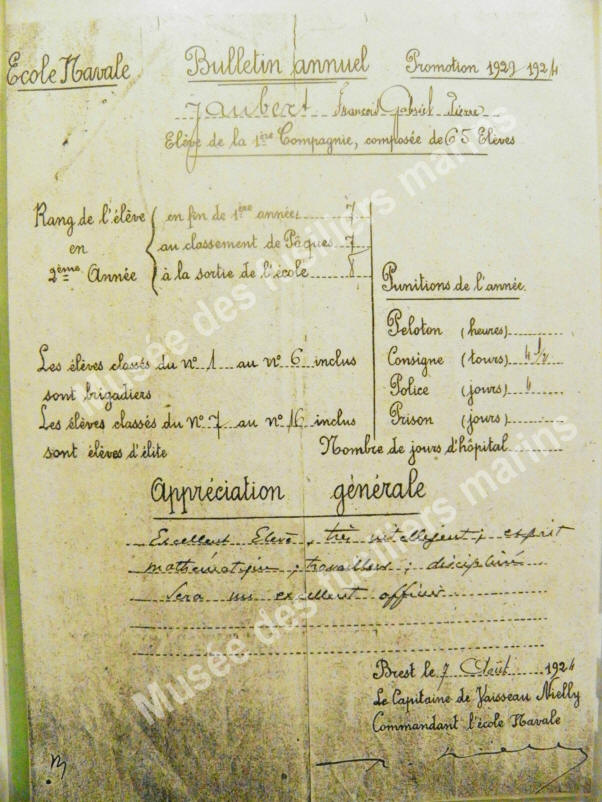 Ecole Navale Bulletin annuel Promotion 1922 1924
Jaubert François Gabriel Pierre
Elève de la 1ère Compagnie, composée de 65 Elèves
Rang de l'élève en fin de 1ère année 7
en au classement de Pâques 7
2ème Année à la sortie de l'école 8
Punitions de l'année
Peloton (heures)
Consigne (tours) 4 1/2
Police (jours) 4
Prison (jours)
Les élèves classés du N° 1 au N° 6 inclus
sont brigadiers
Les élèves classés du N° 7 au N° 16 inclus
sont élèves d'élite
Nombre de jours d'hôpital
Appréciation générale
Excellent Elève, très intelligent ; esprit
mathématique ; travailleur ; discipliné
Sera un excellent officier
Brest le 7 Août 1924
Le Capitaine de Vaisseau Nielly
Commandant l'école Navale
Musée des fusiliers marins
Musée des fusiliers marins